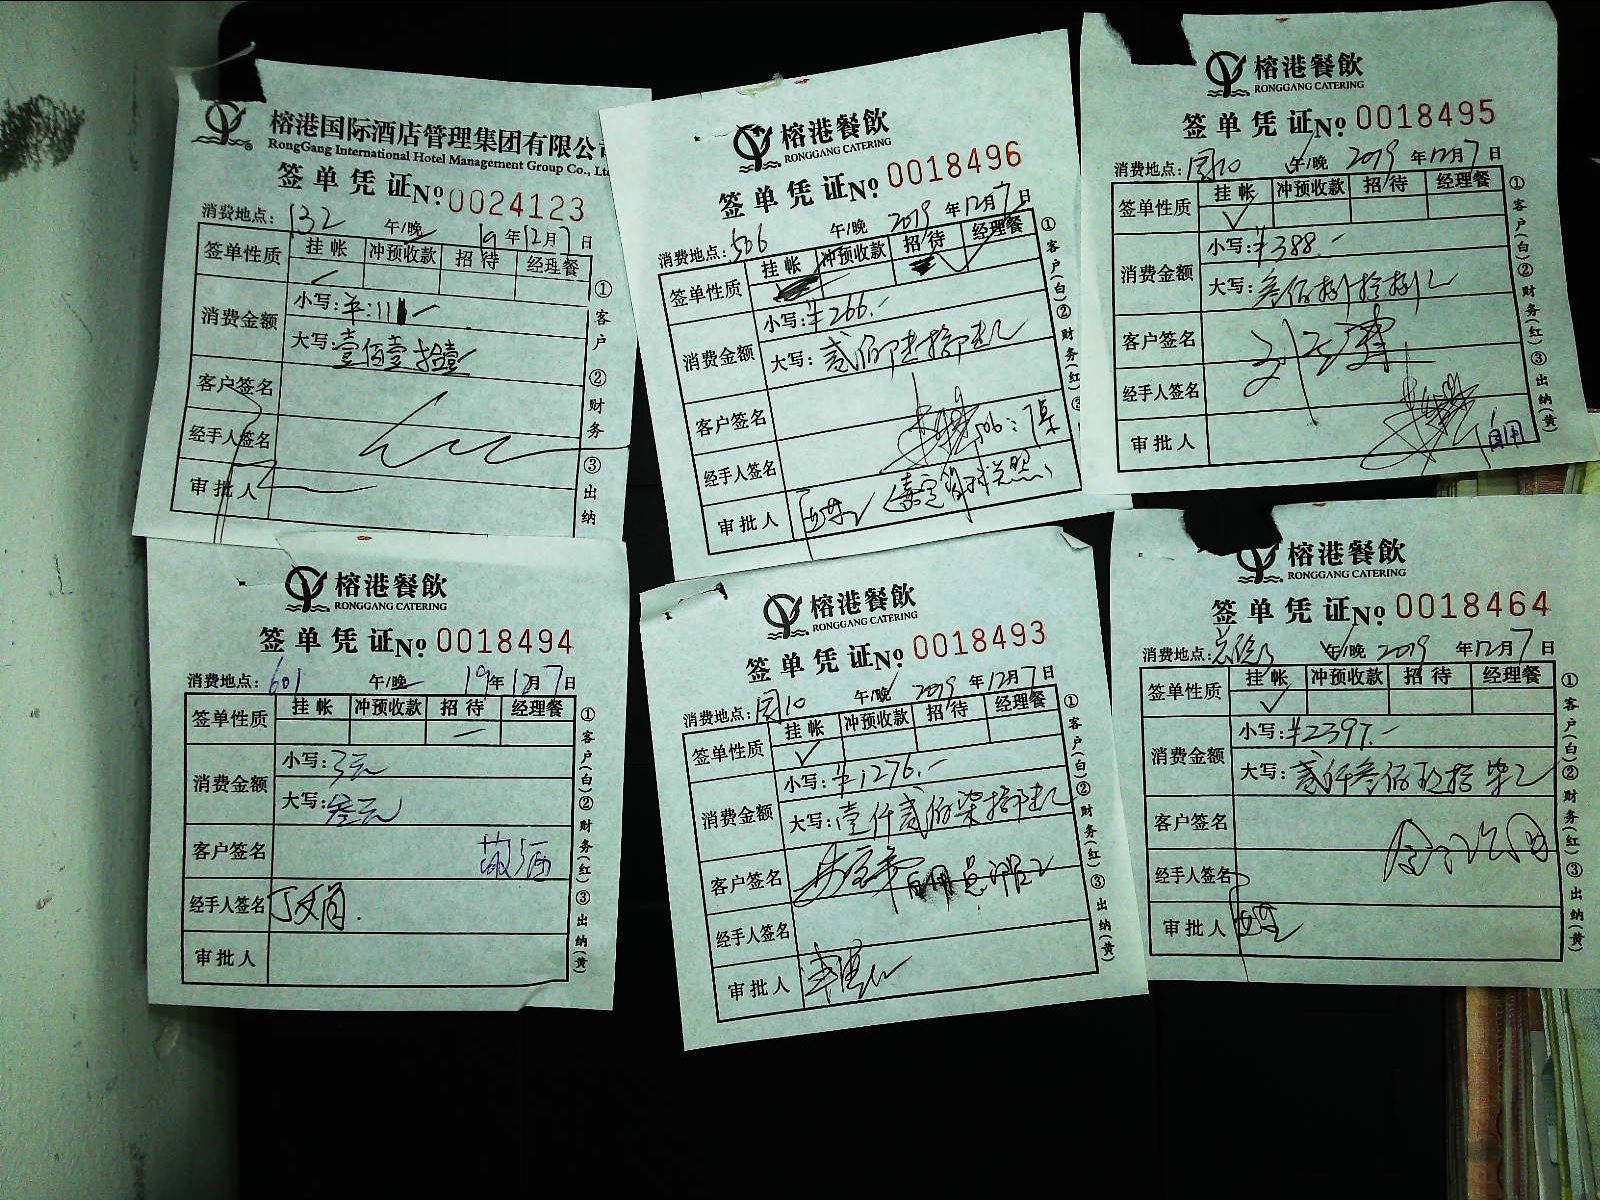 榕港国际酒店管理集团有限公
RongGang International Hotel Management Group Co., Lt
签单凭证 No 0024123
消费地点: 132 午/晚 19年12月7日
签单性质 挂帐 冲预收款 招待 经理餐
消费金额 小写: 111
大写: 壹佰壹拾壹
客户签名
经手人签名
审批人
①客户 ②财务 ③出纳
榕港餐飲
RONGGANG CATERING
签单凭证 No 0018496
消费地点: 506 午/晚 2019年12月7日
签单性质 挂帐 冲预收款 招待 经理餐
消费金额 小写: ¥266.-
大写: 贰佰陆拾陆元
客户签名 506:
经手人签名
审批人
①客户(白)②财务(红)
榕港餐飲
RONGGANG CATERING
签单凭证 No 0018495
消费地点: 午/晚 2019年12月7日
签单性质 挂帐 冲预收款 招待 经理餐
消费金额 小写: ¥388.-
大写: 叁佰捌拾捌元
客户签名
经手人签名
审批人
①客户(白)②财务(红)③出纳(黄)
榕港餐飲
RONGGANG CATERING
签单凭证 No 0018494
消费地点: 601 午/晚 19年12月7日
签单性质 挂帐 冲预收款 招待 经理餐
消费金额 小写: 3元
大写: 叁元
客户签名 敬酒
经手人签名
审批人
①客户(白)②财务(红)③出纳(黄)
榕港餐飲
RONGGANG CATERING
签单凭证 No 0018493
消费地点: 午/晚 2019年12月7日
签单性质 挂帐 冲预收款 招待 经理餐
消费金额 小写: ¥1276.-
大写: 壹仟贰佰柒拾陆元
客户签名
经手人签名
审批人
①客户(白)②财务(红)③出纳(黄)
榕港餐飲
RONGGANG CATERING
签单凭证 No 0018464
消费地点: 午/晚 2019年12月7日
签单性质 挂帐 冲预收款 招待 经理餐
消费金额 小写: ¥2397.-
大写: 贰仟叁佰玖拾柒元
客户签名
经手人签名
审批人
①客户(白)②财务(红)③出纳(黄)